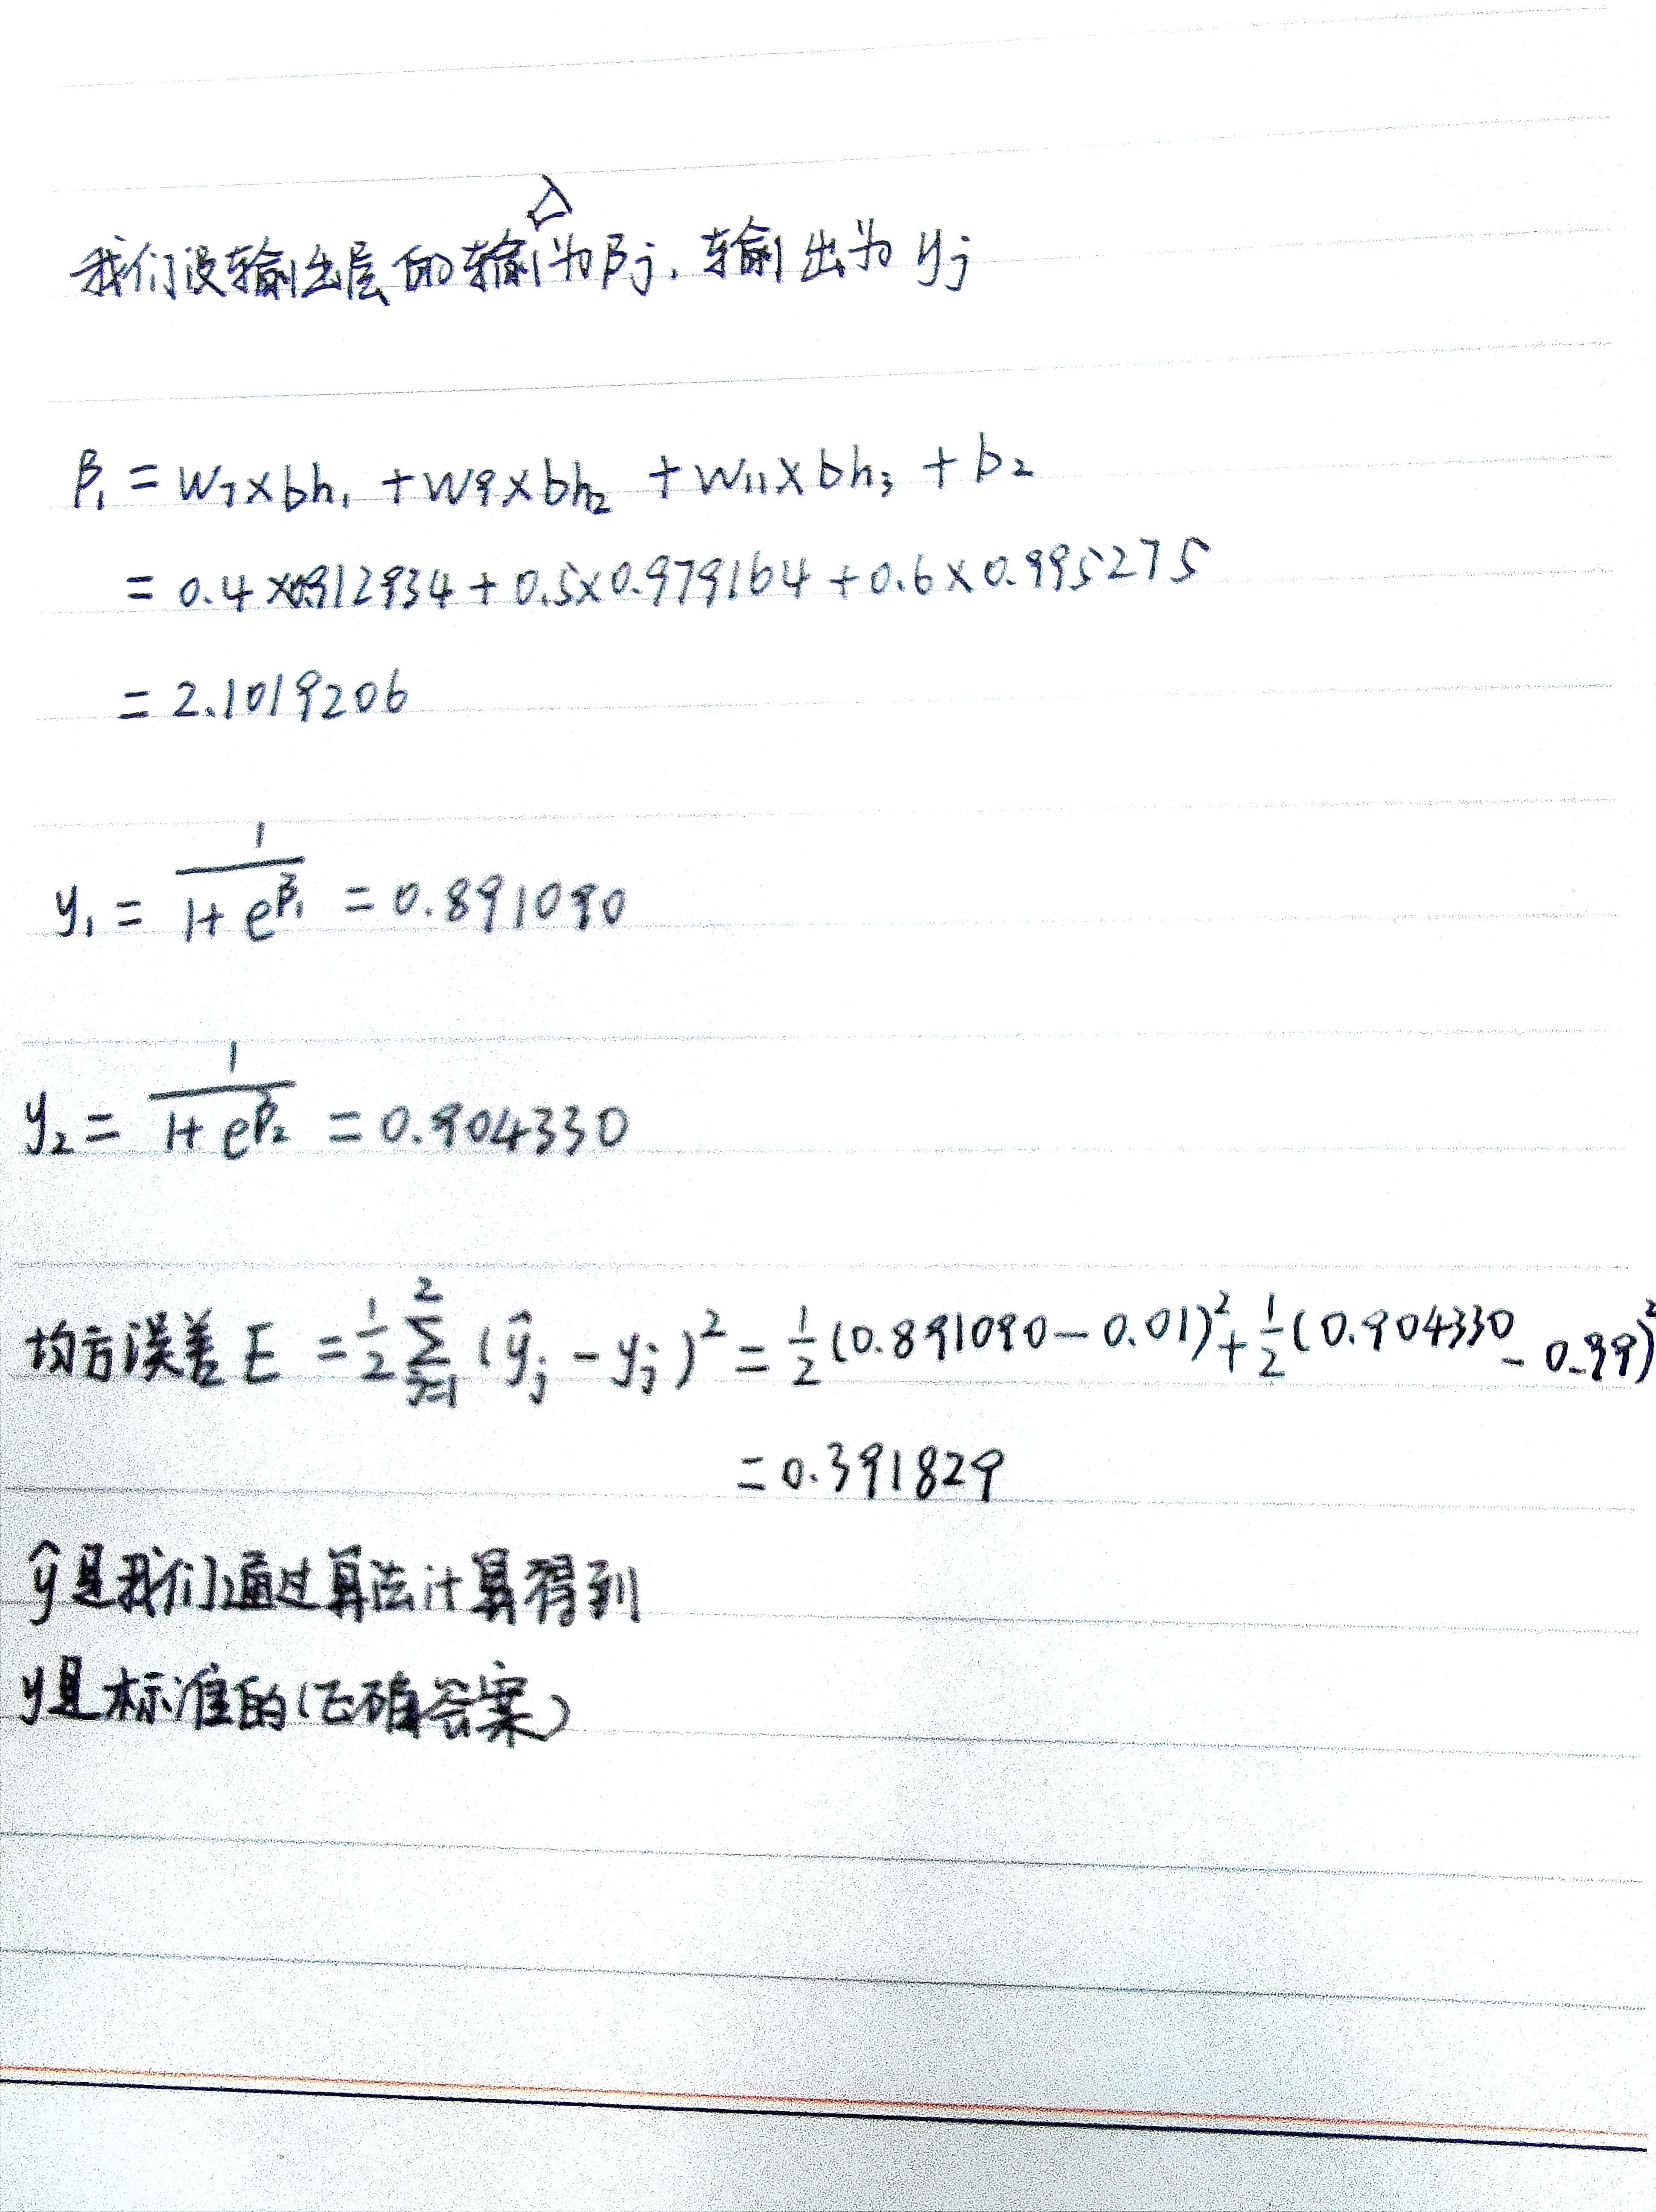 我们设输出层的输入为βj，输出为yj
β₁ = w₇×bh₁ + w₉×bh₂ + w₁₁×bh₃ + b₂
= 0.4×0.912934 + 0.5×0.979164 + 0.6×0.995275
= 2.1019206
y₁ = 1/(1+e^β₁) = 0.891090
y₂ = 1/(1+e^β₂) = 0.904330
均方误差 E = 1/2 ∑_{j=1}^{2} (ŷj - yj)² = 1/2(0.891090-0.01)² + 1/2(0.904330-0.99)²
= 0.391829
ŷ是我们通过算法计算得到
y是标准的(正确答案)